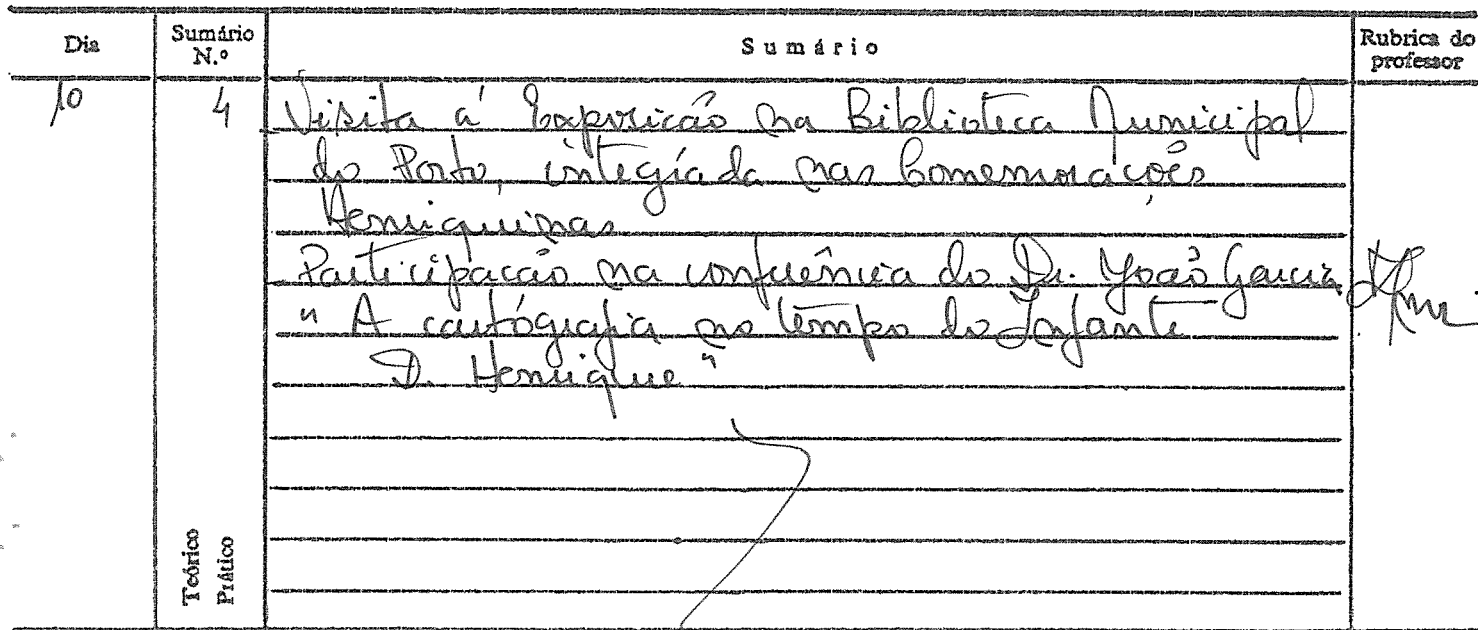 Dia Sumário N.º Sumário Rubrica do professor
10 4 Visita á Exposição na Biblioteca Municipal
do Porto, integrada nas Comemorações
Henriquinas
Participação na conferência do Dr. João Garcia
" A cartografia no tempo do Infante
D. Henrique "
Teórico
Prático